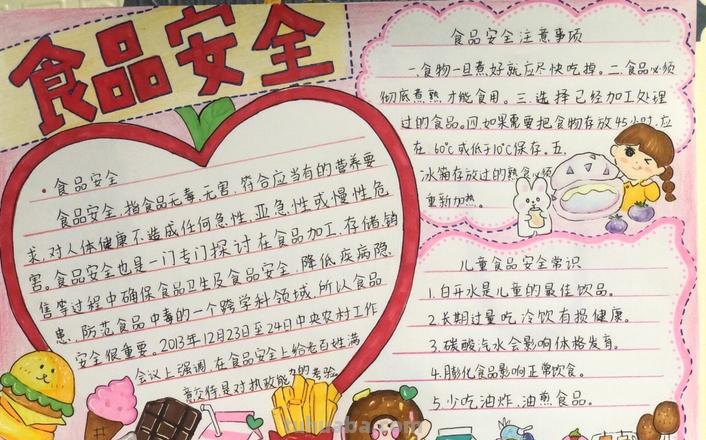 食品安全
·食品安全
食品安全,指食品无毒、无害,符合应当有的营养要
求,对人体健康不造成任何急性、亚急性或慢性危
害。食品安全也是一门专门探讨在食品加工、存储、销
售等过程中确保食品卫生及食品安全,降低疾病隐
患,防范食品中毒的一个跨学科领域,所以食品
安全很重要。2013年12月23日至24日中央农村工作
会议上强调,在食品安全上给老百姓满
意交待是对执政能力的考验
食品安全注意事项
一.食物一旦煮好就应尽快吃掉。二.食品必须
彻底煮熟才能食用。三.选择已经加工处理
过的食品。四.如果需要把食物存放4、5小时,应
在60℃或低于10℃保存。五.
冰箱存放过的熟食必须
重新加热。
儿童食品安全常识
1.白开水是儿童的最佳饮品。
2.长期过量吃冷饮有损健康。
3.碳酸汽水会影响体格发育。
4.膨化食品影响正常饮食。
5.少吃油炸、油煎食品。